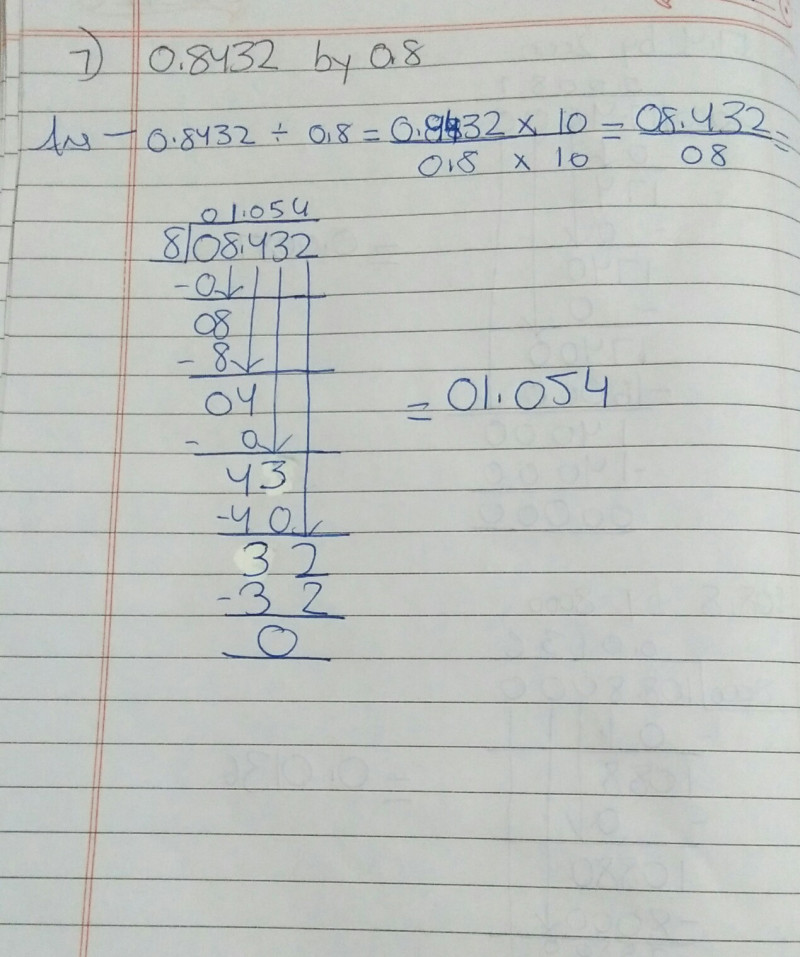 7) 0.8432 by 0.8
Ans - 0.8432 ÷ 0.8 = 0.8432 × 10 = 08.432 =
0.8 × 10 08
01.054
8 08.432
- 0
08
- 8
04
- 0
43
-40
32
-32
0
= 01.054